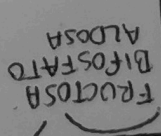 FRUCTOSA
BIFOSFATO
ALDOSA